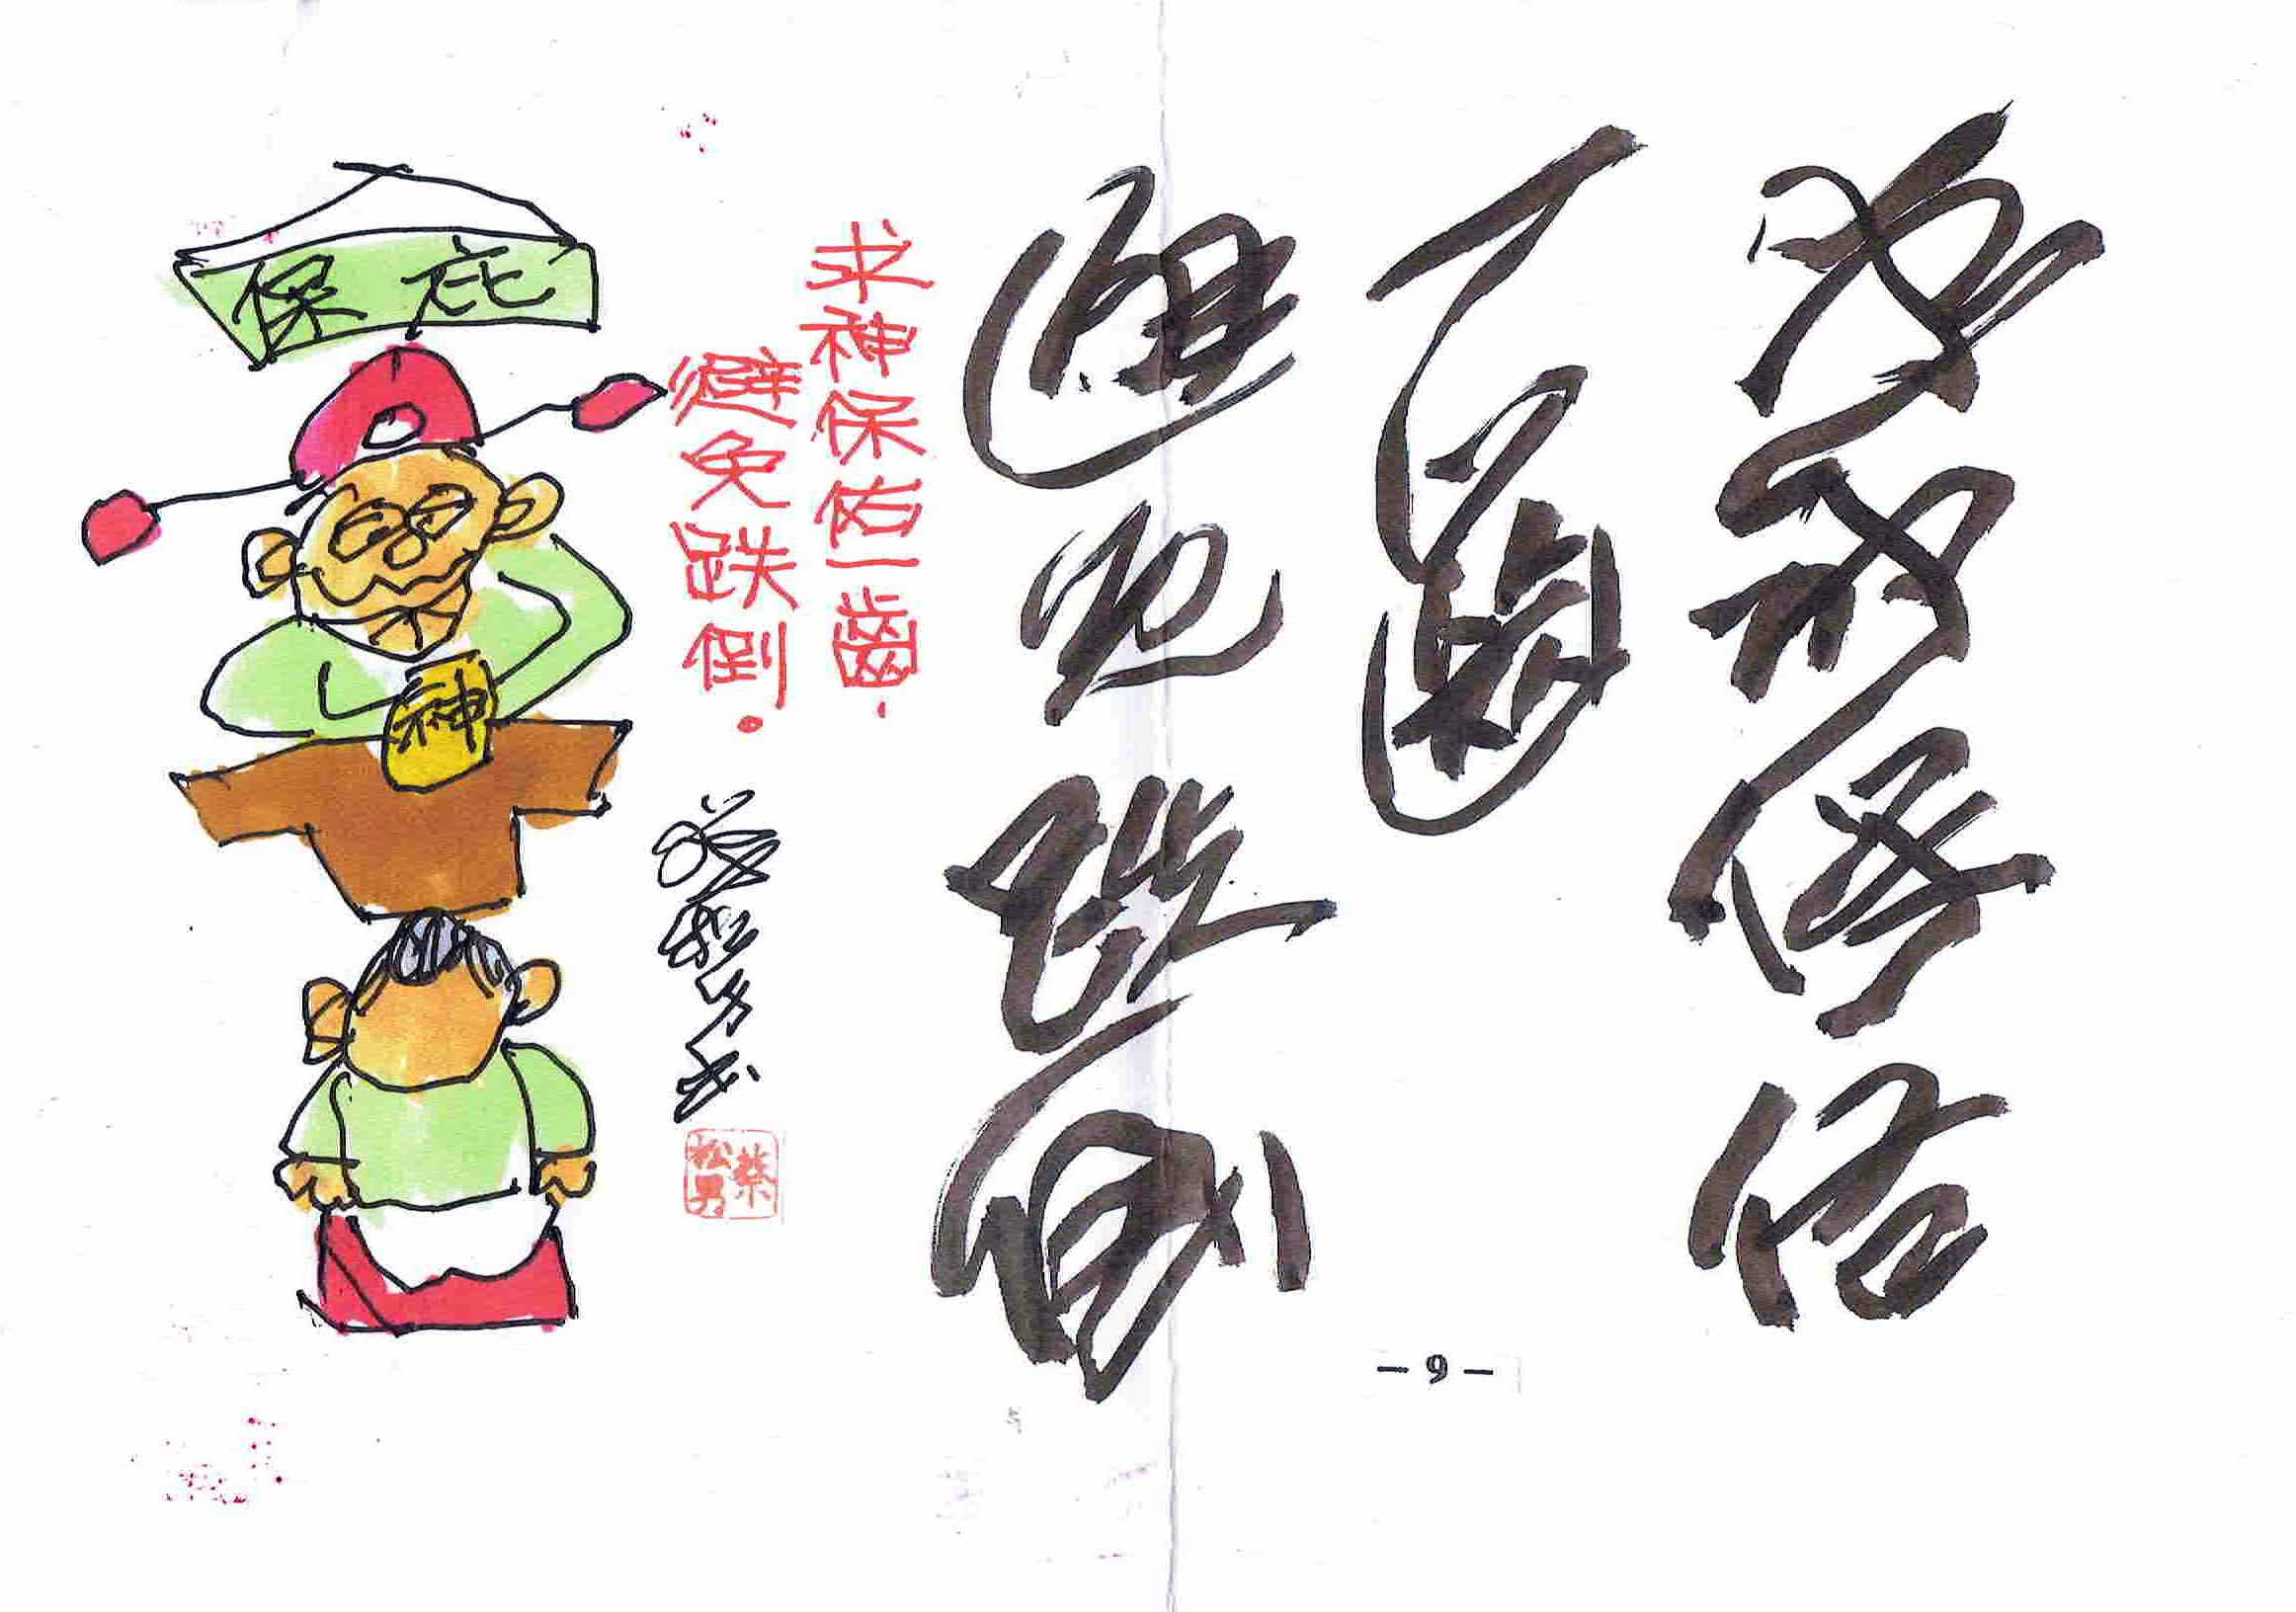 求神保佑
一齒
避免跌倒
求神保佑一齒.
避免跌倒.
蔡松男書
蔡松男
保庇
神
- 9 -